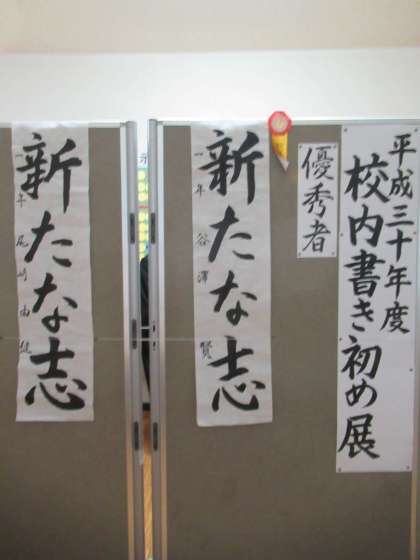 平成三十年度
校内書き初め展
優秀者
新たな志
一年 谷澤 賢
新たな志
一年 尾崎由